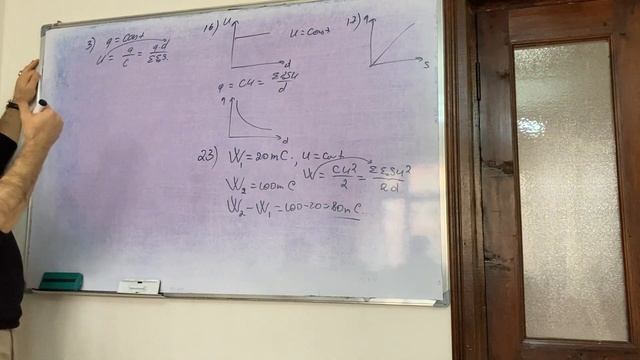 3) q = const
U = q/C = q·d/εε₀S
16) U
U = const
d
q = CU = εε₀SU/d
q
d
17) q
S
23) W₁ = 20 mC, U = const
W = CU²/2 = εε₀SU²/2d
W₂ = 100 mC
W₂ - W₁ = 100 - 20 = 80 mC